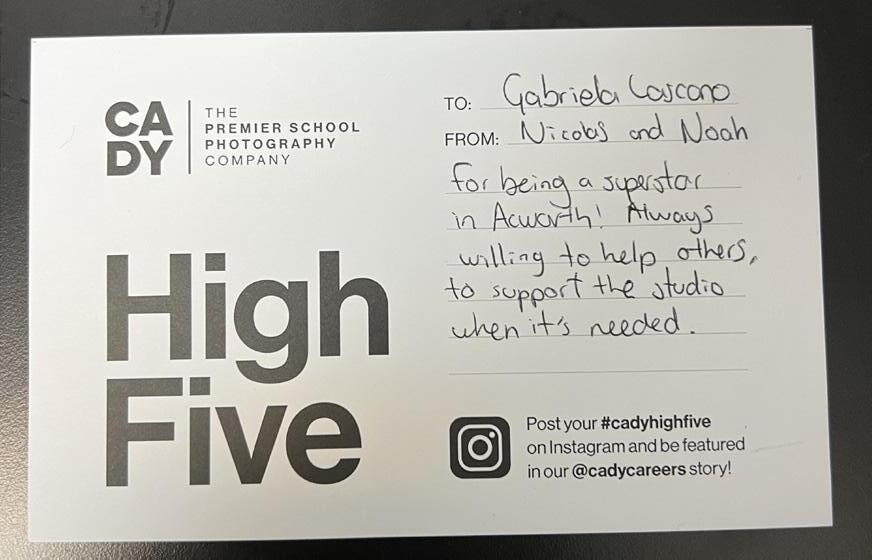 CA
DY
THE
PREMIER SCHOOL
PHOTOGRAPHY
COMPANY
High
Five
TO: Gabriela Cascano
FROM: Nicolas and Noah
for being a superstar
in Acworth! Always
willing to help others,
to support the studio
when it's needed.
Post your #cadyhighfive
on Instagram and be featured
in our @cadycareers story!